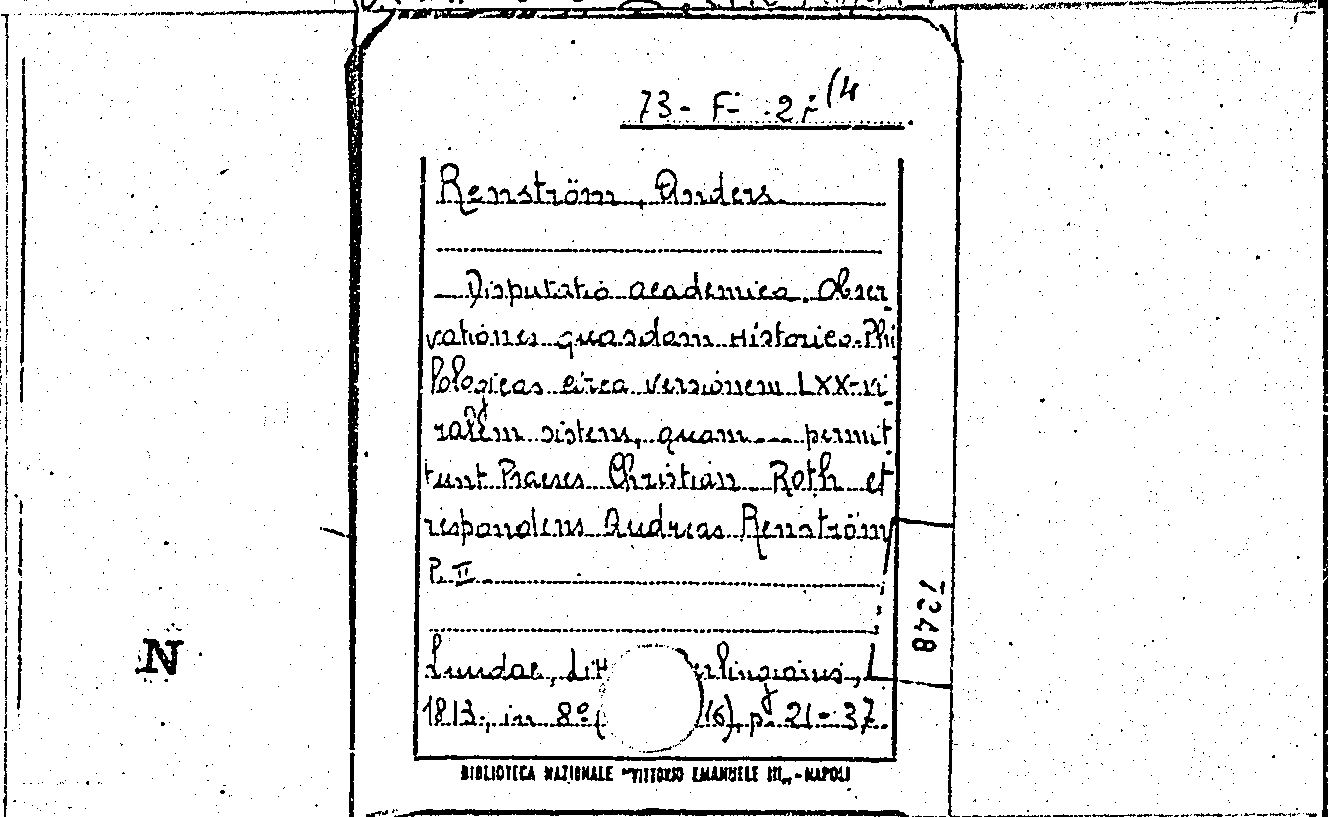 73 - F - 2 i (4
Renström, Anders
Disputatio academica. Obser
vationes quasdam Historico-Phi
lologicas circa versionem LXX-vi
ralem sistens, quam --- permit
tunt Praeses Christian Roth et
respondens Andreas Renström
P. II
Lundae, litt erlingianis,
1813, in 8° ( 16), p. 21-37.
7248
N
BIBLIOTECA NAZIONALE "VITTORIO EMANUELE III" - NAPOLI